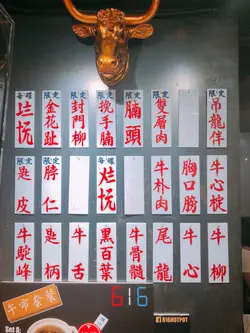 每日
限定 金花趾
限定 封門柳
限定 挽手腩
限定 腩頭
限定 雙層肉
限定 吊龍伴
限定 匙皮
限定 脖仁
牛舌
每日
牛朴肉
胸口膀
牛心椗
牛駝峰
匙柄
牛舌
黑百葉
牛骨髓
尾龍
牛心
牛柳
616
午市套餐
Set A:
616HOTPOT